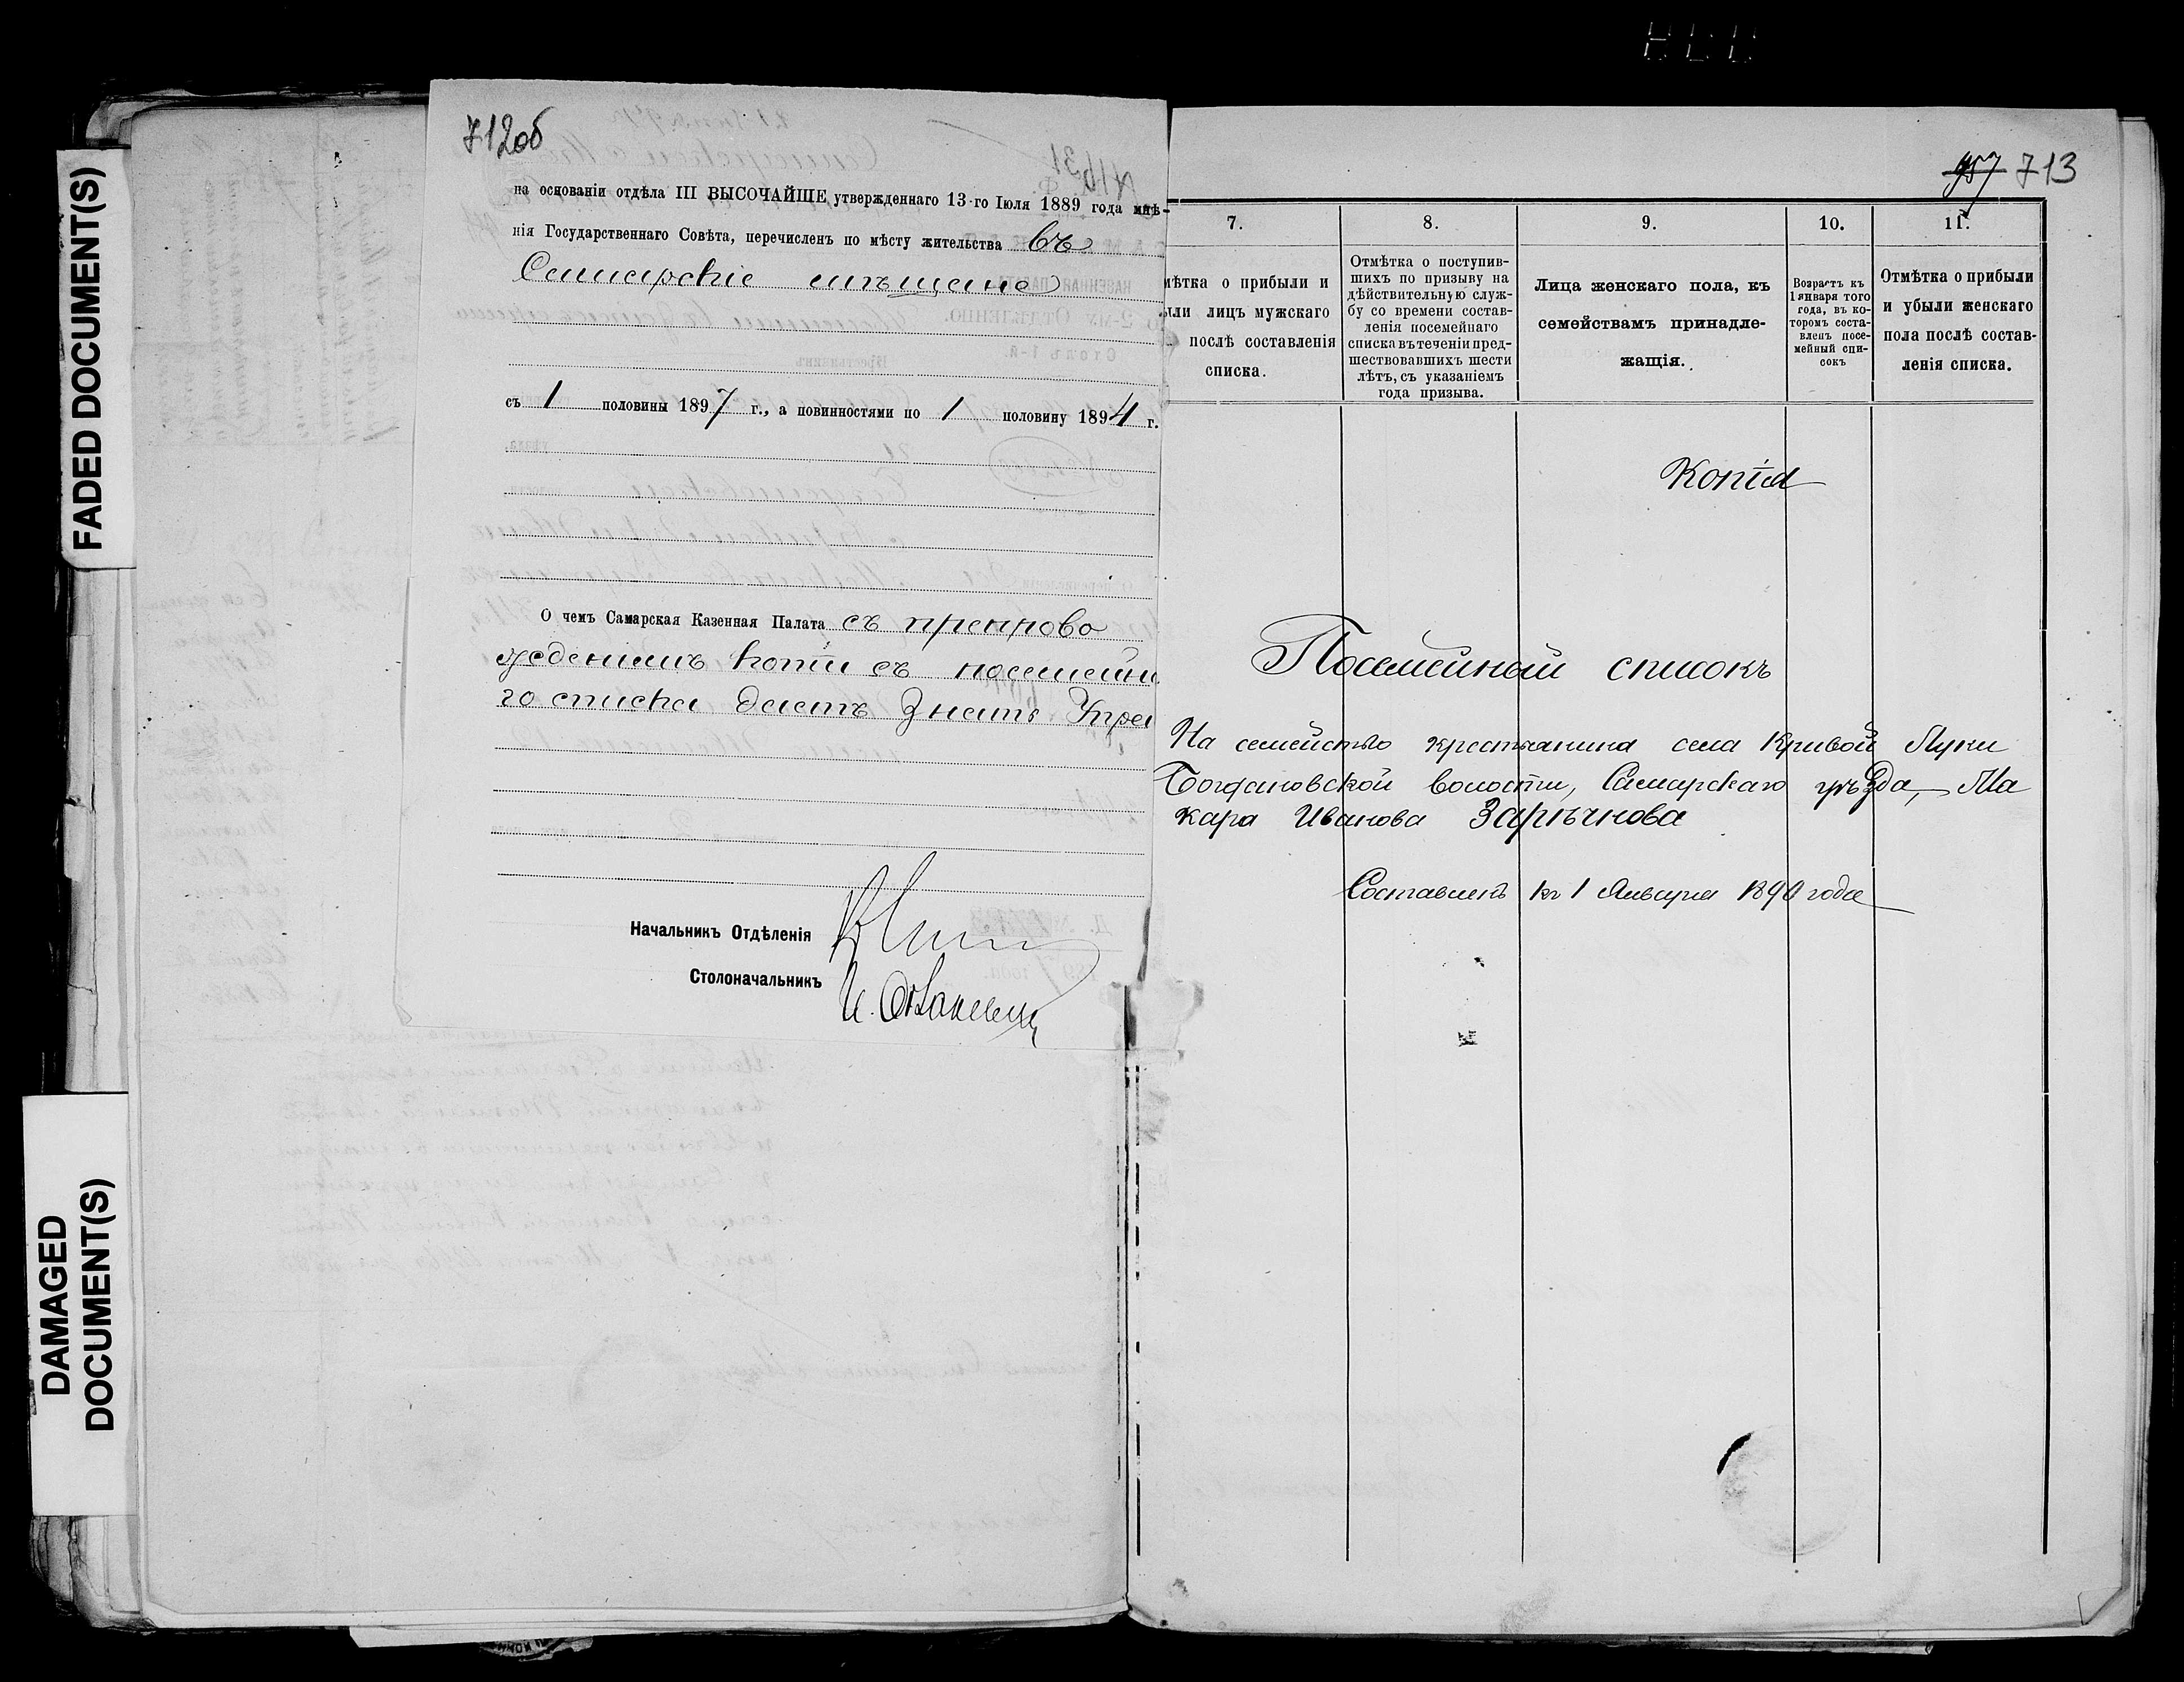 FADED DOCUMENT(S)
DAMAGED
DOCUMENT(S)
712об
на основаніи отдѣла III ВЫСОЧАЙШЕ утвержденнаго 13-го Іюля 1889 года мнѣ-
нія Государственнаго Совѣта, перечисленъ по мѣсту жительства въ
Самарскіе мѣщане
съ 1 половины 1897 г., а повинностями по 1 половину 1894 г.
О чемъ Самарская Казенная Палата съ препрово
жденіемъ копіи съ посемейна
го списка даетъ знать Упра
Начальникъ Отдѣленія
Столоначальникъ
957 713
7.
8.
9.
10.
11.
мѣтка о прибыли и
ыли лицъ мужскаго
послѣ составленія
списка.
Отмѣтка о поступив-
шихъ по призыву на
дѣйствительную служ-
бу со времени состав-
ленія посемейнаго
списка въ теченіи пред-
шествовавшихъ шести
лѣтъ, съ указаніемъ
года призыва.
Лица женскаго пола, къ
семействамъ принадле-
жащія.
Возрастъ къ
1 января того
года, въ ко-
торомъ соста-
вленъ посе-
мейный спи-
сокъ
Отмѣтка о прибыли
и убыли женскаго
пола послѣ состав-
ленія списка.
Копія
Посемейный списокъ
На семейство крестьянина села Кривой Луки
Богдановской волости, Самарскаго уѣзда, Ма
кара Иванова Зарѣчнова
Составленъ къ 1 Января 1890 года